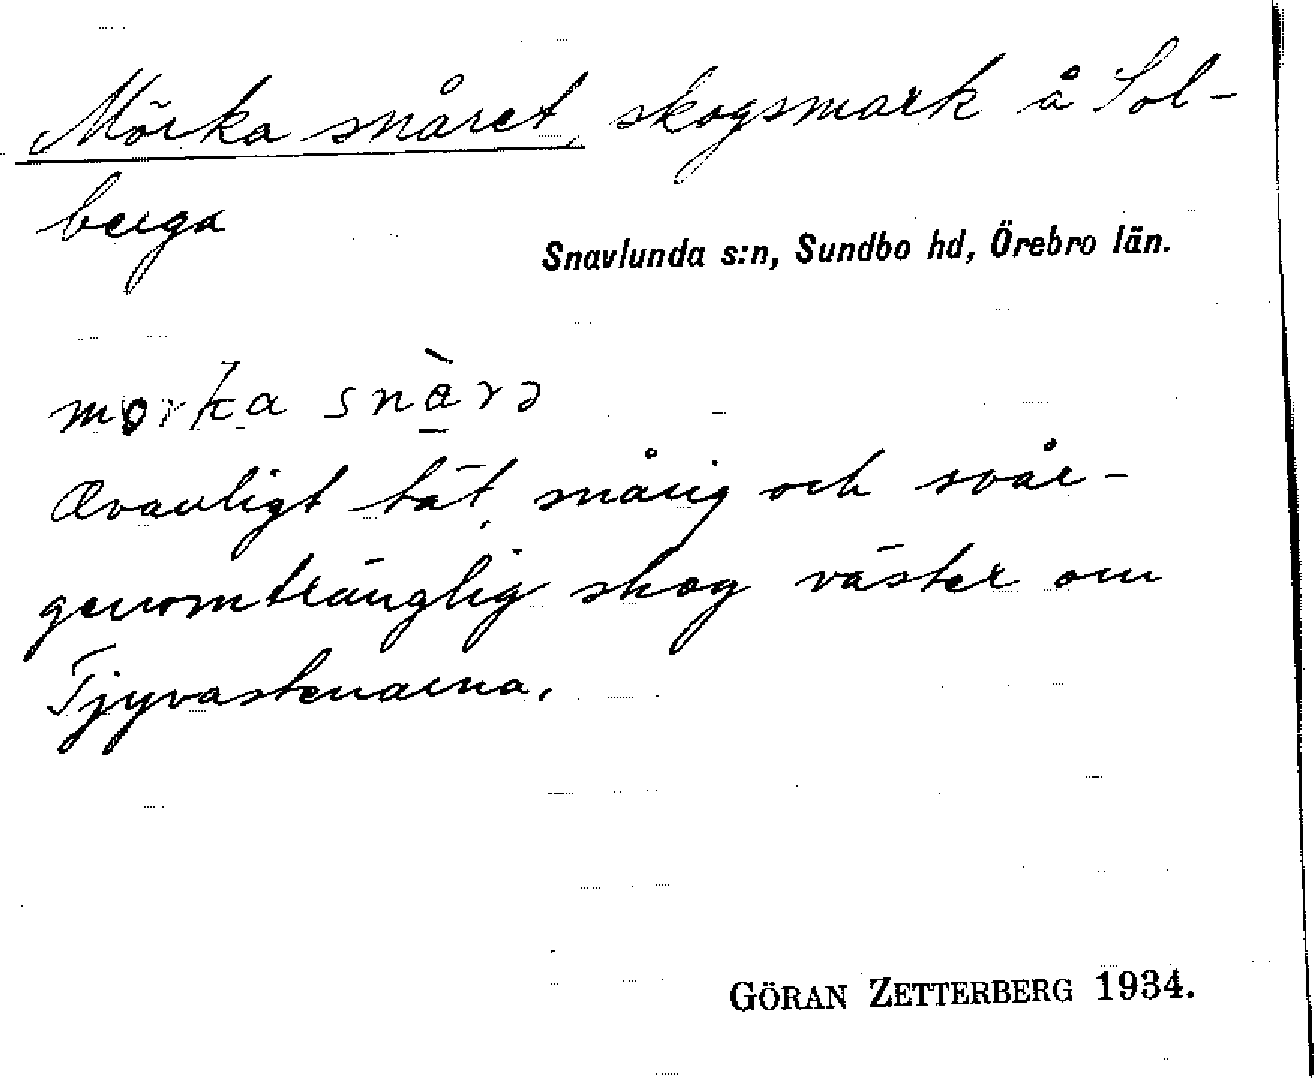 Mörka snåret, skogsmark å Sol-
berga
Snavlunda s:n, Sundbo hd, Örebro län.
morka snàrə
Ovanligt tät, snårig och svår-
genomtränglig skog väster om
Tjyvastenarna.
GÖRAN ZETTERBERG 1934.